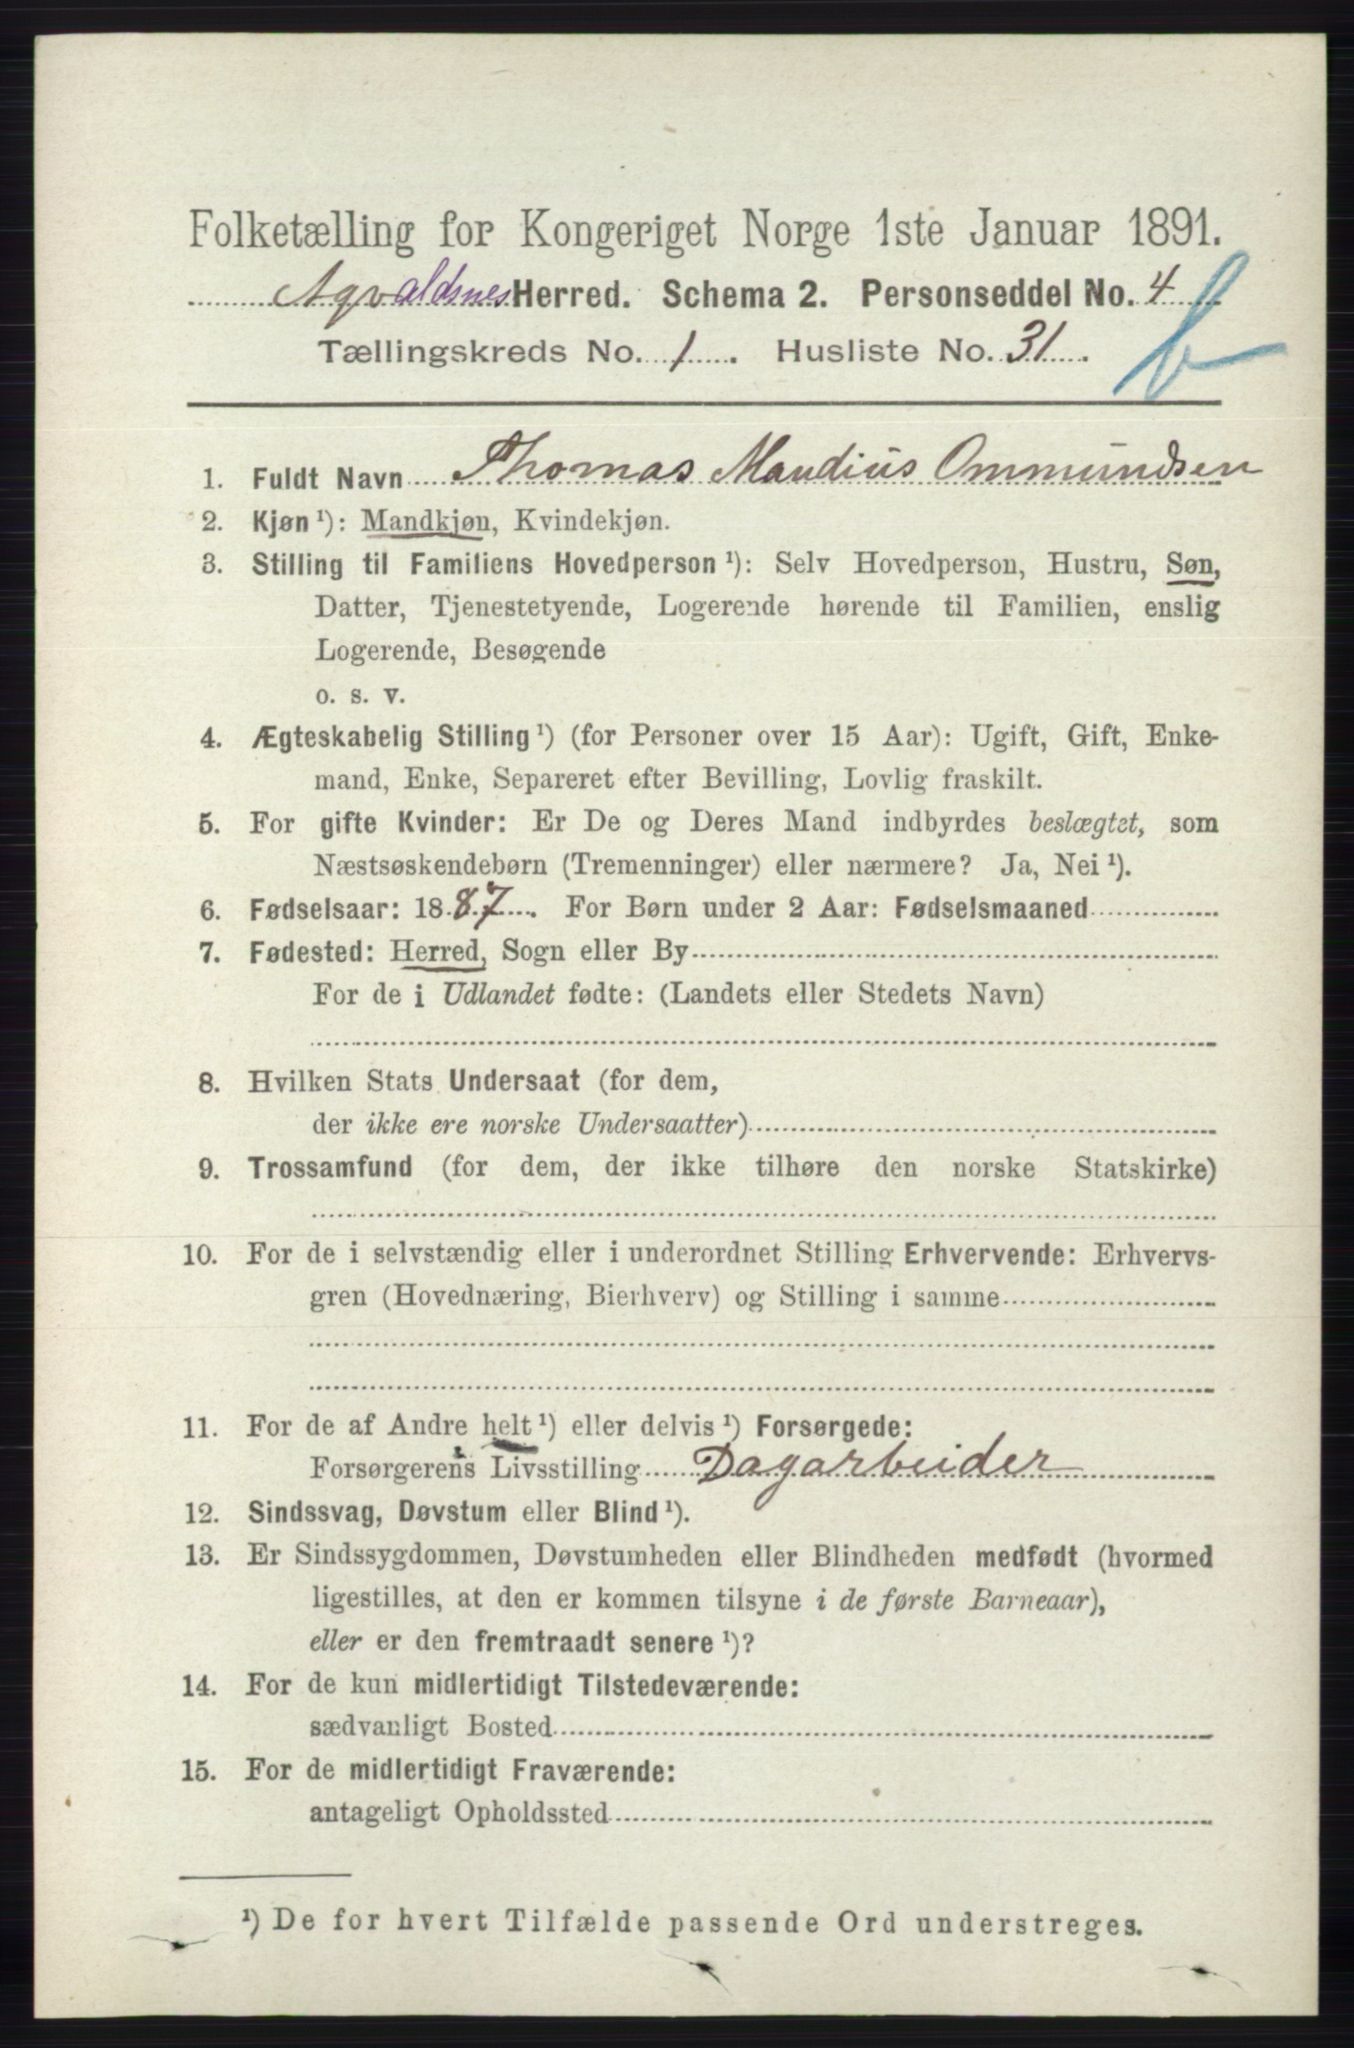 Folketælling for Kongeriget Norge 1ste Januar 1891.
Aqvaldsnes Herred. Schema 2. Personseddel No. 4
Tællingskreds No. 1. Husliste No. 31.
b
1. Fuldt Navn Thomas Mandius Ommundsen
2. Kjøn ¹): Mandkjøn, Kvindekjøn.
3. Stilling til Familiens Hovedperson ¹): Selv Hovedperson, Hustru, Søn,
Datter, Tjenestetyende, Logerende hørende til Familien, enslig
Logerende, Besøgende
o. s. v.
4. Ægteskabelig Stilling ¹) (for Personer over 15 Aar): Ugift, Gift, Enke-
mand, Enke, Separeret efter Bevilling, Lovlig fraskilt.
5. For gifte Kvinder: Er De og Deres Mand indbyrdes beslægtet, som
Næstsøskendebørn (Tremenninger) eller nærmere? Ja, Nei ¹).
6. Fødselsaar: 1887. For Børn under 2 Aar: Fødselsmaaned
7. Fødested: Herred, Sogn eller By
For de i Udlandet fødte: (Landets eller Stedets Navn)
8. Hvilken Stats Undersaat (for dem,
der ikke ere norske Undersaatter)
9. Trossamfund (for dem, der ikke tilhøre den norske Statskirke)
10. For de i selvstændig eller i underordnet Stilling Erhvervende: Erhvervs-
gren (Hovednæring, Bierhverv) og Stilling i samme
11. For de af Andre helt ¹) eller delvis ¹) Forsørgede:
Forsørgerens Livsstilling Dagarbeider
12. Sindssvag, Døvstum eller Blind ¹).
13. Er Sindssygdommen, Døvstumheden eller Blindheden medfødt (hvormed
ligestilles, at den er kommen tilsyne i de første Barneaar),
eller er den fremtraadt senere ¹)?
14. For de kun midlertidigt Tilstedeværende:
sædvanligt Bosted
15. For de midlertidigt Fraværende:
antageligt Opholdssted
¹) De for hvert Tilfælde passende Ord understreges.